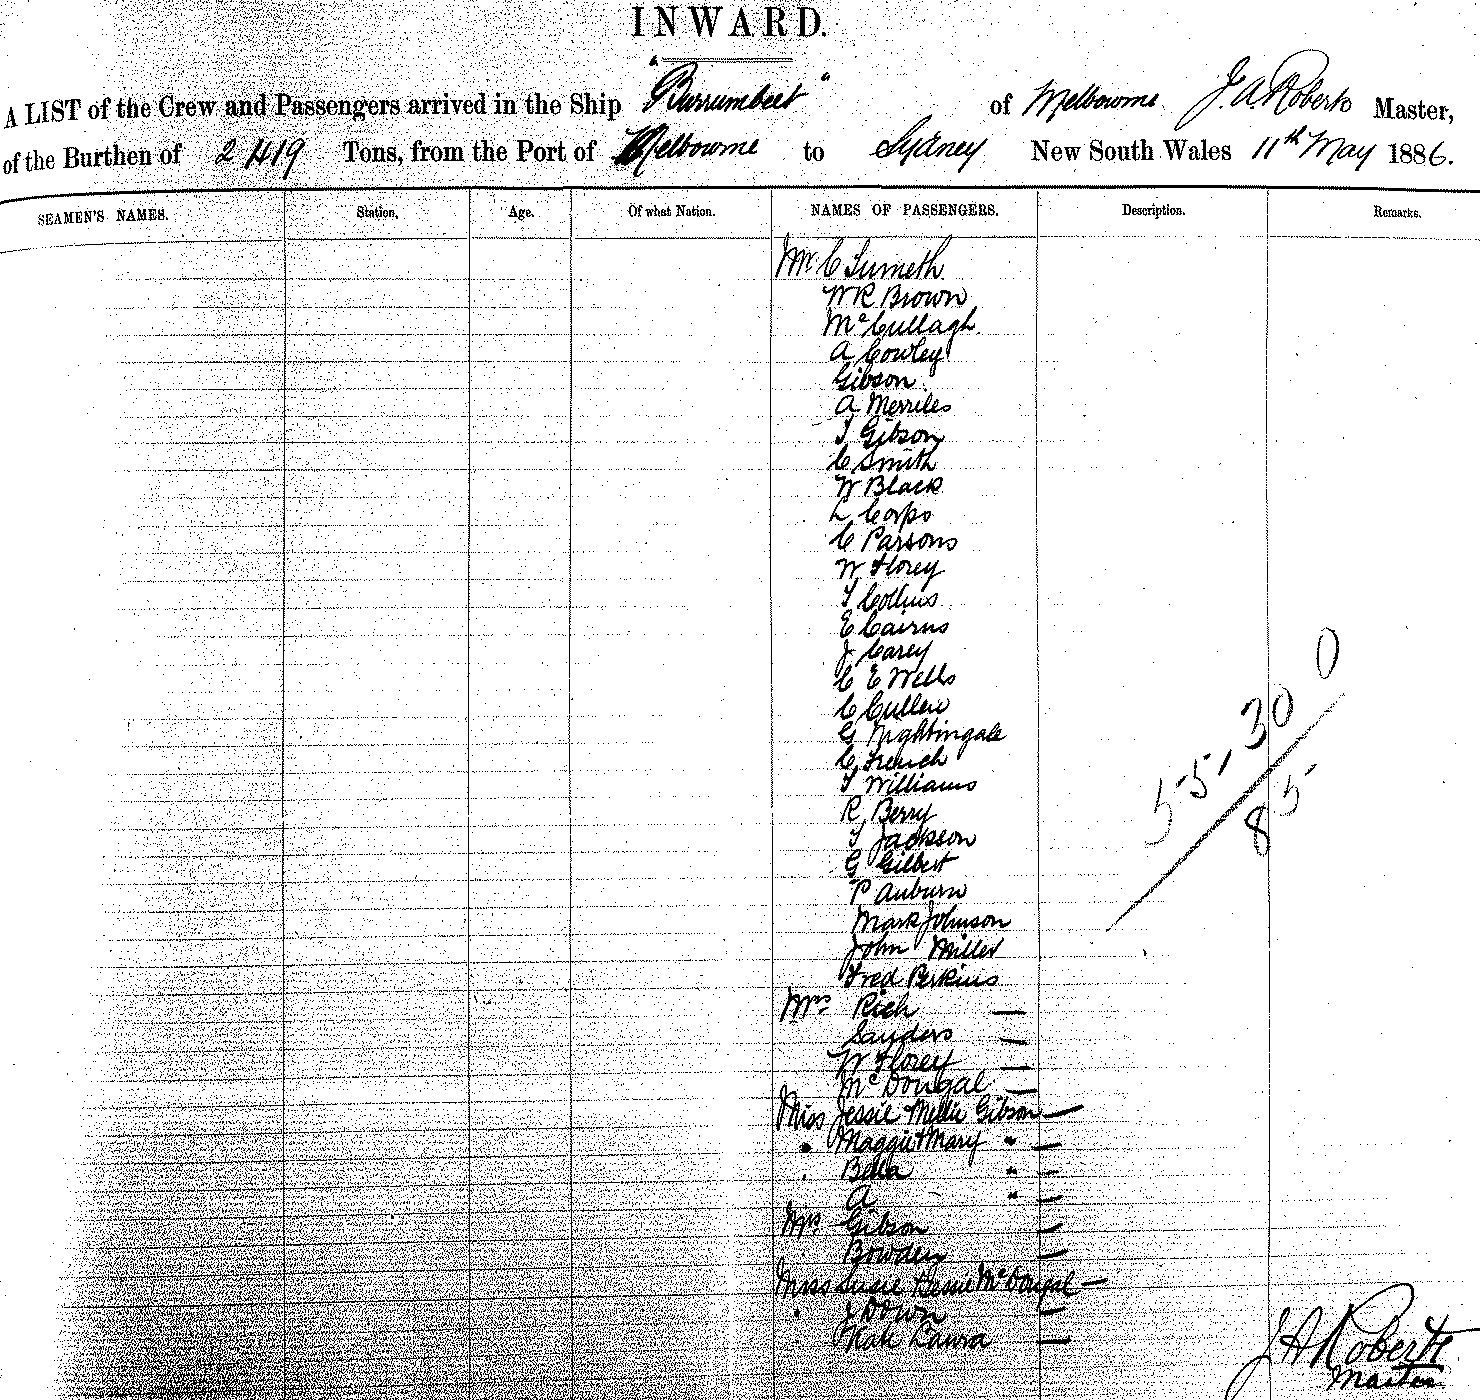 INWARD.
A LIST of the Crew and Passengers arrived in the Ship "Burrumbeet" of Melbourne J. A. Roberts Master,
of the Burthen of 2419 Tons, from the Port of Melbourne to Sydney New South Wales 11th May 1886.
SEAMEN'S NAMES. Station. Age. Of what Nation. NAMES OF PASSENGERS. Description. Remarks.
Mr C
W R Brown
McCullagh
A Cowley
Gibson
A Merriles
T Gibson
C Smith
W Black
L Corps
C Parsons
W Florey
T Collins
E Cairns
J Carey
C E Wells
C Cullen
G Nightingale
C French
T Williams
R Berry
T Jackson
G Gilbert
P Auburn
Mark Johnson
John Miller
Fred Perkins
Mrs Rich —
Sanders —
W Florey —
McDougal —
Miss Jessie + Nellie Gibson —
" Maggie + Mary " —
" Bella " —
A " —
Mrs Gibson —
Bowden —
Miss Bessie McDougal —
" Down —
Laura —
55, 30 0
85
J A Roberts
Master